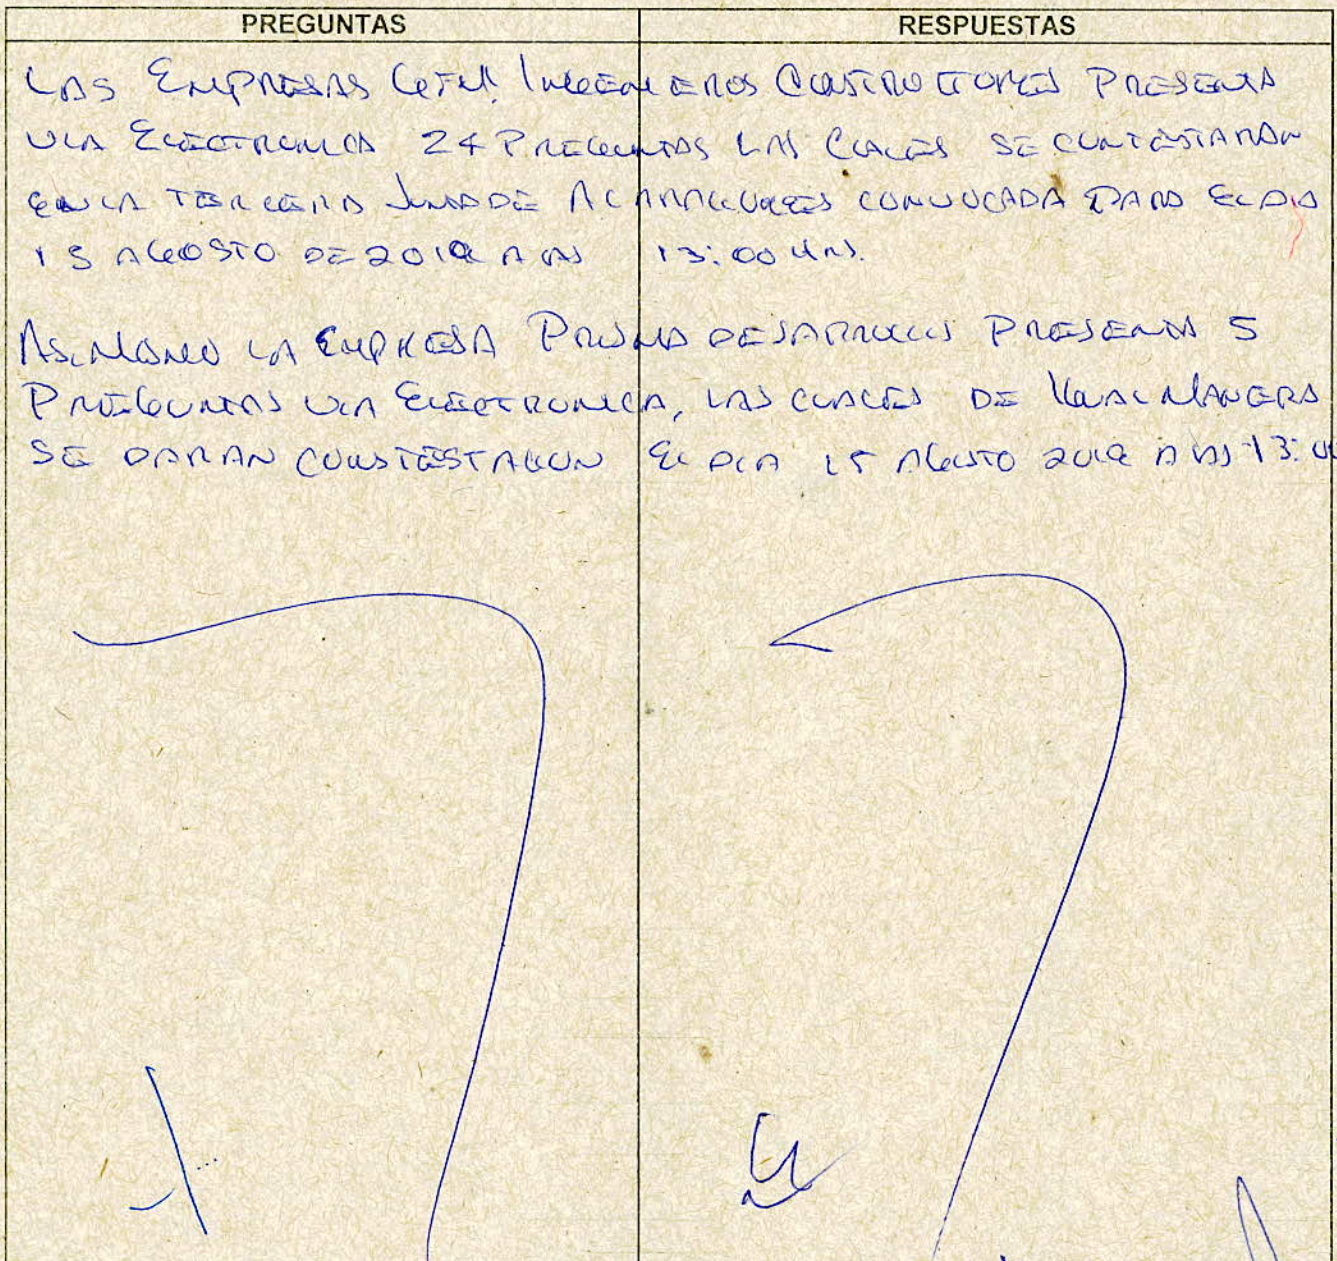 PREGUNTAS RESPUESTAS
LAS EMPRESAS INGENIEROS CONSTRUCTORES PRESENTA
VIA ELECTRONICA 24 PREGUNTAS LAS CUALES SE CONTESTARAN
EN LA TERCERA JUNTA DE ACLARACIONES CONVOCADA PARA EL DIA
15 AGOSTO DE A LAS 13:00 HRS.
ASIMISMO LA EMPRESA PRISMA DESARROLLOS PRESENTA 5
PREGUNTAS VIA ELECTRONICA, LAS CUALES DE IGUAL MANERA
SE DARAN CONTESTACION EL DIA 15 AGOSTO A LAS 13:00